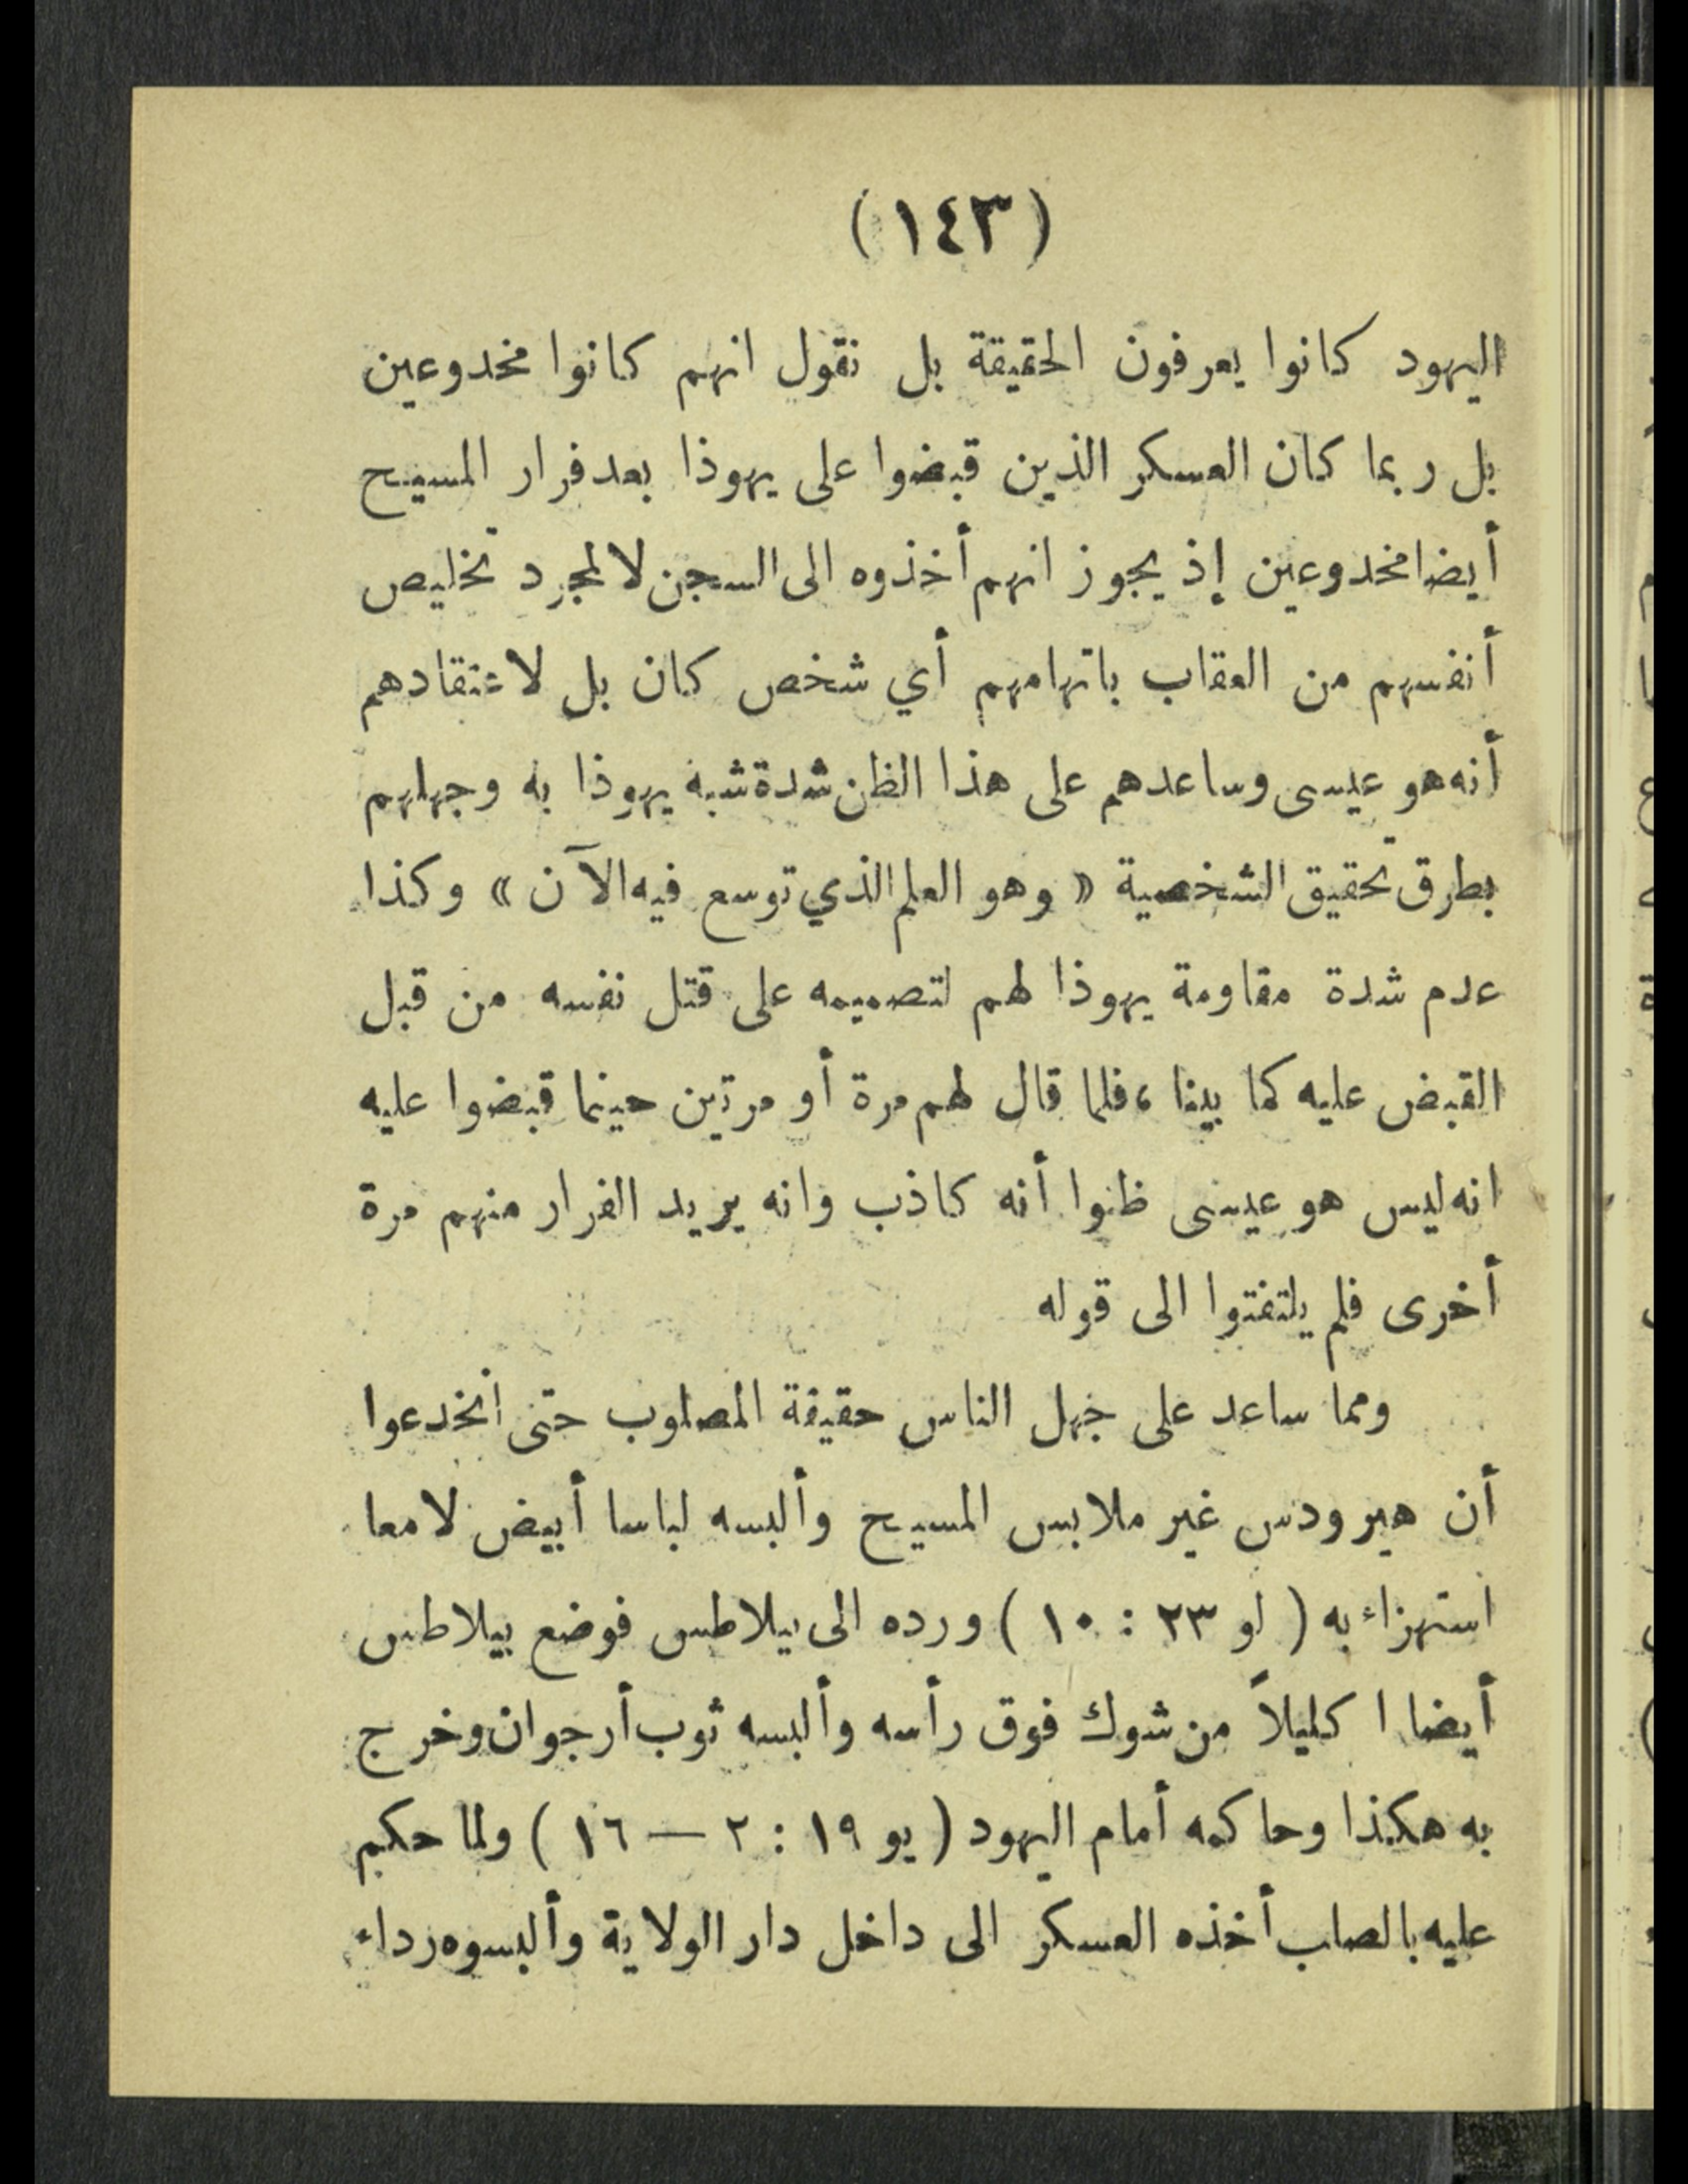 (١٤٣)
اليهود كانوا يعرفون الحقيقة بل نقول انهم كانوا مخدوعين
بل ربما كان العسكر الذين قبضوا على يهوذا بعد فرار المسيح
أيضا مخدوعين إذ يجوز انهم أخذوه الى السجن لا لمجرد تخليص
أنفسهم من العقاب باتهامهم أي شخص كان بل لاعتقادهم
أنه هو عيسى وساعدهم على هذا الظن شدة شبه يهوذا به وجهلهم
بطرق تحقيق الشخصية « وهو العلم الذي توسع فيه الآن » وكذا
عدم شدة مقاومة يهوذا لهم لتصميمه على قتل نفسه من قبل
القبض عليه كما بينا ، فلما قال لهم مرة أو مرتين حينما قبضوا عليه
انه ليس هو عيسى ظنوا أنه كاذب وانه يريد الفرار منهم مرة
أخرى فلم يلتفتوا الى قوله
ومما ساعد على جهل الناس حقيقة المصلوب حتى انخدعوا
أن هيرودس غير ملابس المسيح وألبسه لباسا أبيض لامعا
استهزاء به ( لو ٢٣ : ١٠ ) ورده الى بيلاطس فوضع بيلاطس
أيضا اكليلاً من شوك فوق رأسه وألبسه ثوب أرجوان وخرج
به هكذا وحاكمه أمام اليهود ( يو ١٩ : ٢ — ١٦ ) ولما حكم
عليه بالصلب أخذه العسكر الى داخل دار الولاية وألبسوه رداء